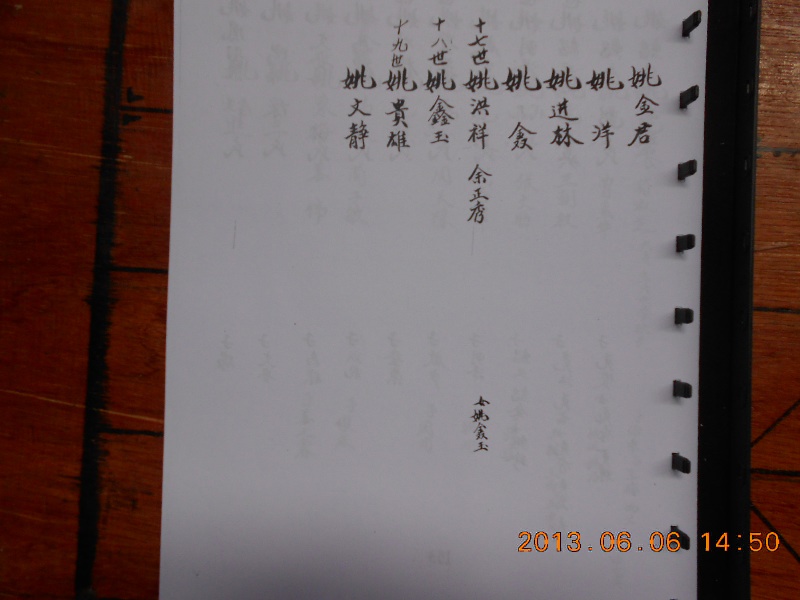 姚金君
姚洋
姚进林
姚鑫
十七世姚洪祥 余正秀 女姚鑫玉
十八世姚鑫玉
十九世姚貴雄
姚文静
2013.06.06 14:50